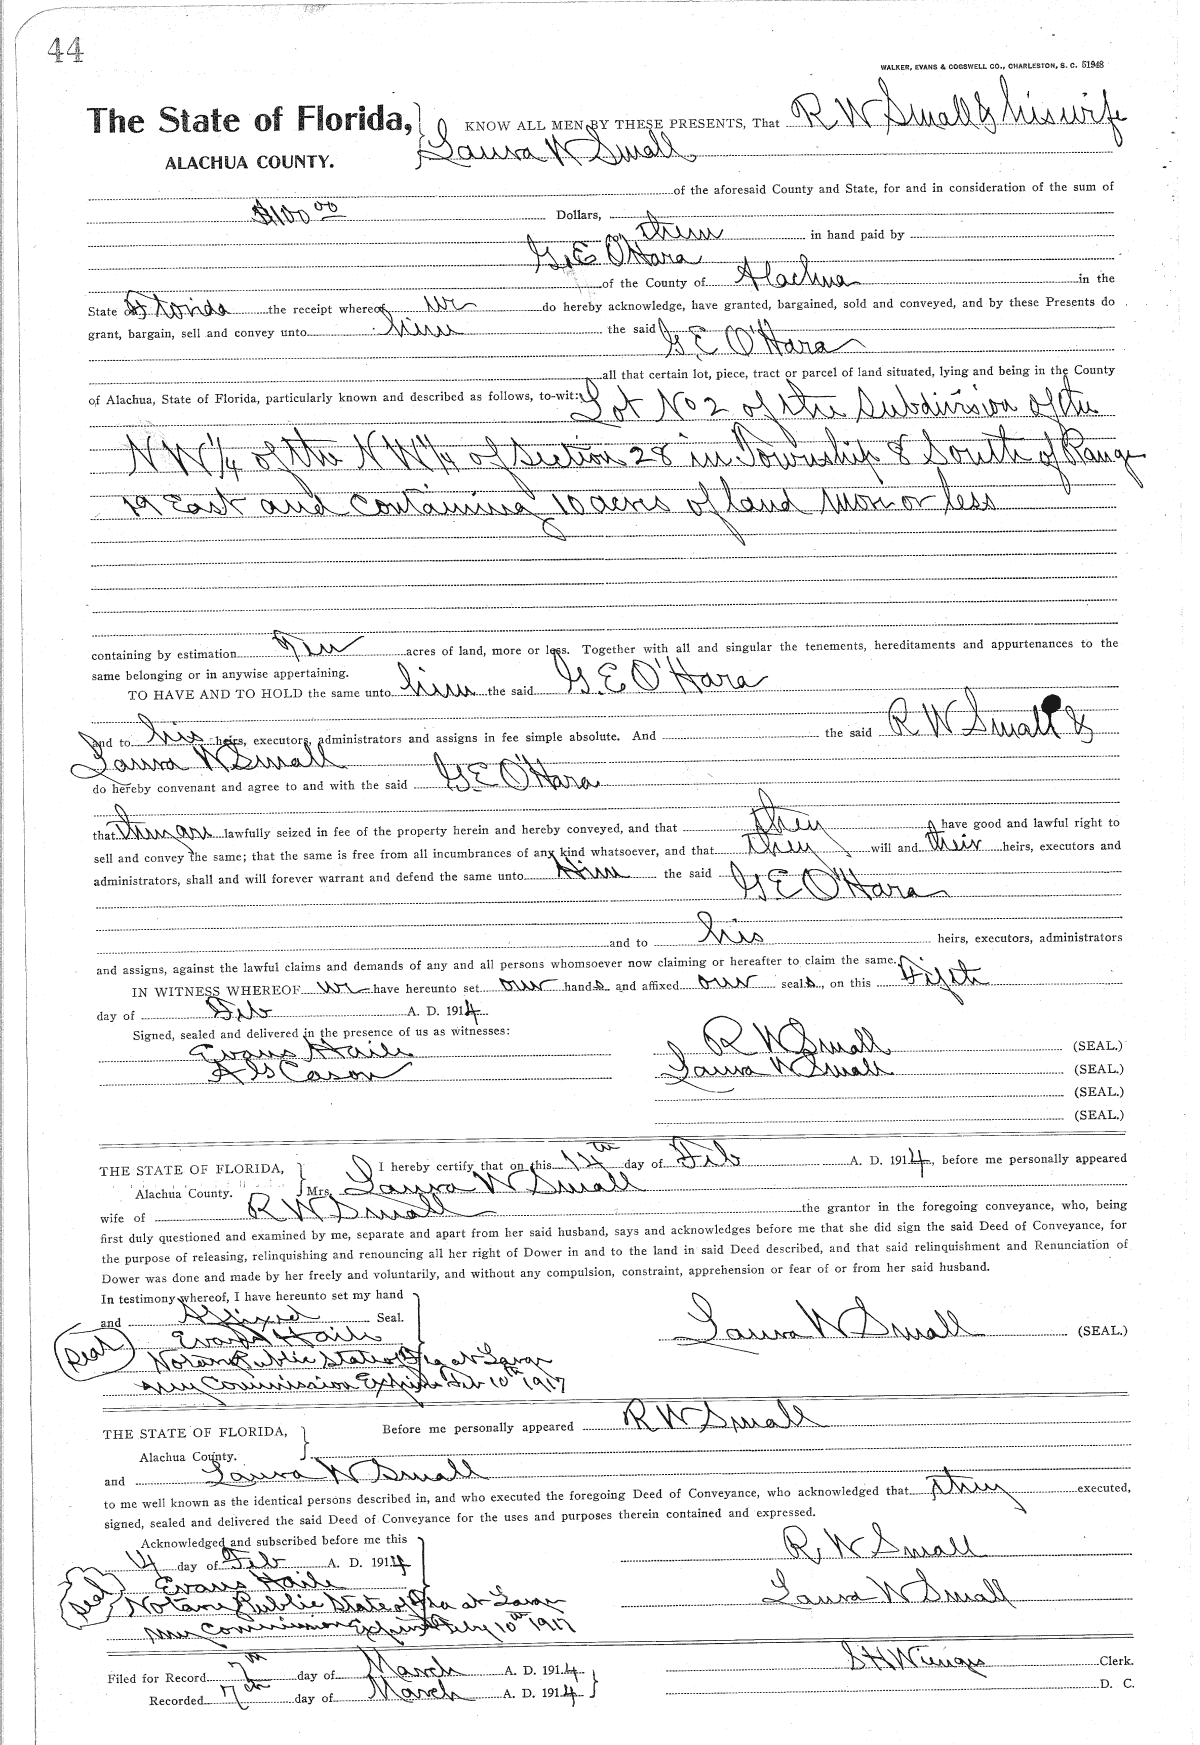 44
WALKER, EVANS & COGSWELL CO., CHARLESTON, S. C. 51948
The State of Florida, KNOW ALL MEN BY THESE PRESENTS, That R W Small & his wife
ALACHUA COUNTY. Laura W Small
of the aforesaid County and State, for and in consideration of the sum of
$100 00 Dollars,
them in hand paid by
G. E O'Hara
of the County of Alachua in the
State of Florida the receipt whereof we do hereby acknowledge, have granted, bargained, sold and conveyed, and by these Presents do
grant, bargain, sell and convey unto him the said G E O'Hara
all that certain lot, piece, tract or parcel of land situated, lying and being in the County
of Alachua, State of Florida, particularly known and described as follows, to-wit: Lot No 2 of the Subdivision of the
NW 1/4 of the NW 1/4 of Section 28 in Township 8 South of Range
19 East and containing 10 acres of land more or less
containing by estimation Ten acres of land, more or less. Together with all and singular the tenements, hereditaments and appurtenances to the
same belonging or in anywise appertaining.
TO HAVE AND TO HOLD the same unto him the said G. E O'Hara
and to his heirs, executors, administrators and assigns in fee simple absolute. And the said R W Small &
Laura W Small
do hereby convenant and agree to and with the said G E O'Hara
that they are lawfully seized in fee of the property herein and hereby conveyed, and that they have good and lawful right to
sell and convey the same; that the same is free from all incumbrances of any kind whatsoever, and that they will and their heirs, executors and
administrators, shall and will forever warrant and defend the same unto him the said G E O'Hara
and to his heirs, executors, administrators
and assigns, against the lawful claims and demands of any and all persons whomsoever now claiming or hereafter to claim the same.
IN WITNESS WHEREOF we have hereunto set our hands and affixed our seals, on this Fifth
day of Feb A. D. 1914
Signed, sealed and delivered in the presence of us as witnesses:
Evans Haile R W Small (SEAL.)
A G Cason Laura W Small (SEAL.)
(SEAL.)
(SEAL.)
THE STATE OF FLORIDA, I hereby certify that on this 14th day of Feb A. D. 1914, before me personally appeared
Alachua County. Mrs. Laura W Small
wife of R W Small the grantor in the foregoing conveyance, who, being
first duly questioned and examined by me, separate and apart from her said husband, says and acknowledges before me that she did sign the said Deed of Conveyance, for
the purpose of releasing, relinquishing and renouncing all her right of Dower in and to the land in said Deed described, and that said relinquishment and Renunciation of
Dower was done and made by her freely and voluntarily, and without any compulsion, constraint, apprehension or fear of or from her said husband.
In testimony whereof, I have hereunto set my hand
and Affixed Seal. Laura W Small (SEAL.)
Seal Evans Haile
Notary Public State of Fla at Large
My Commission Expires Feb 10th 1917
THE STATE OF FLORIDA, Before me personally appeared R W Small
Alachua County.
and Laura W Small
to me well known as the identical persons described in, and who executed the foregoing Deed of Conveyance, who acknowledged that they executed,
signed, sealed and delivered the said Deed of Conveyance for the uses and purposes therein contained and expressed.
Acknowledged and subscribed before me this
14 day of Feb A. D. 1914 R. W Small
Seal Evans Haile Laura W Small
Notary Public State of Fla at Large
My Commission Expires Feby 10th 1917
Filed for Record 7th day of March A. D. 1914 S H Wienges Clerk.
Recorded 7th day of March A. D. 1914 D. C.